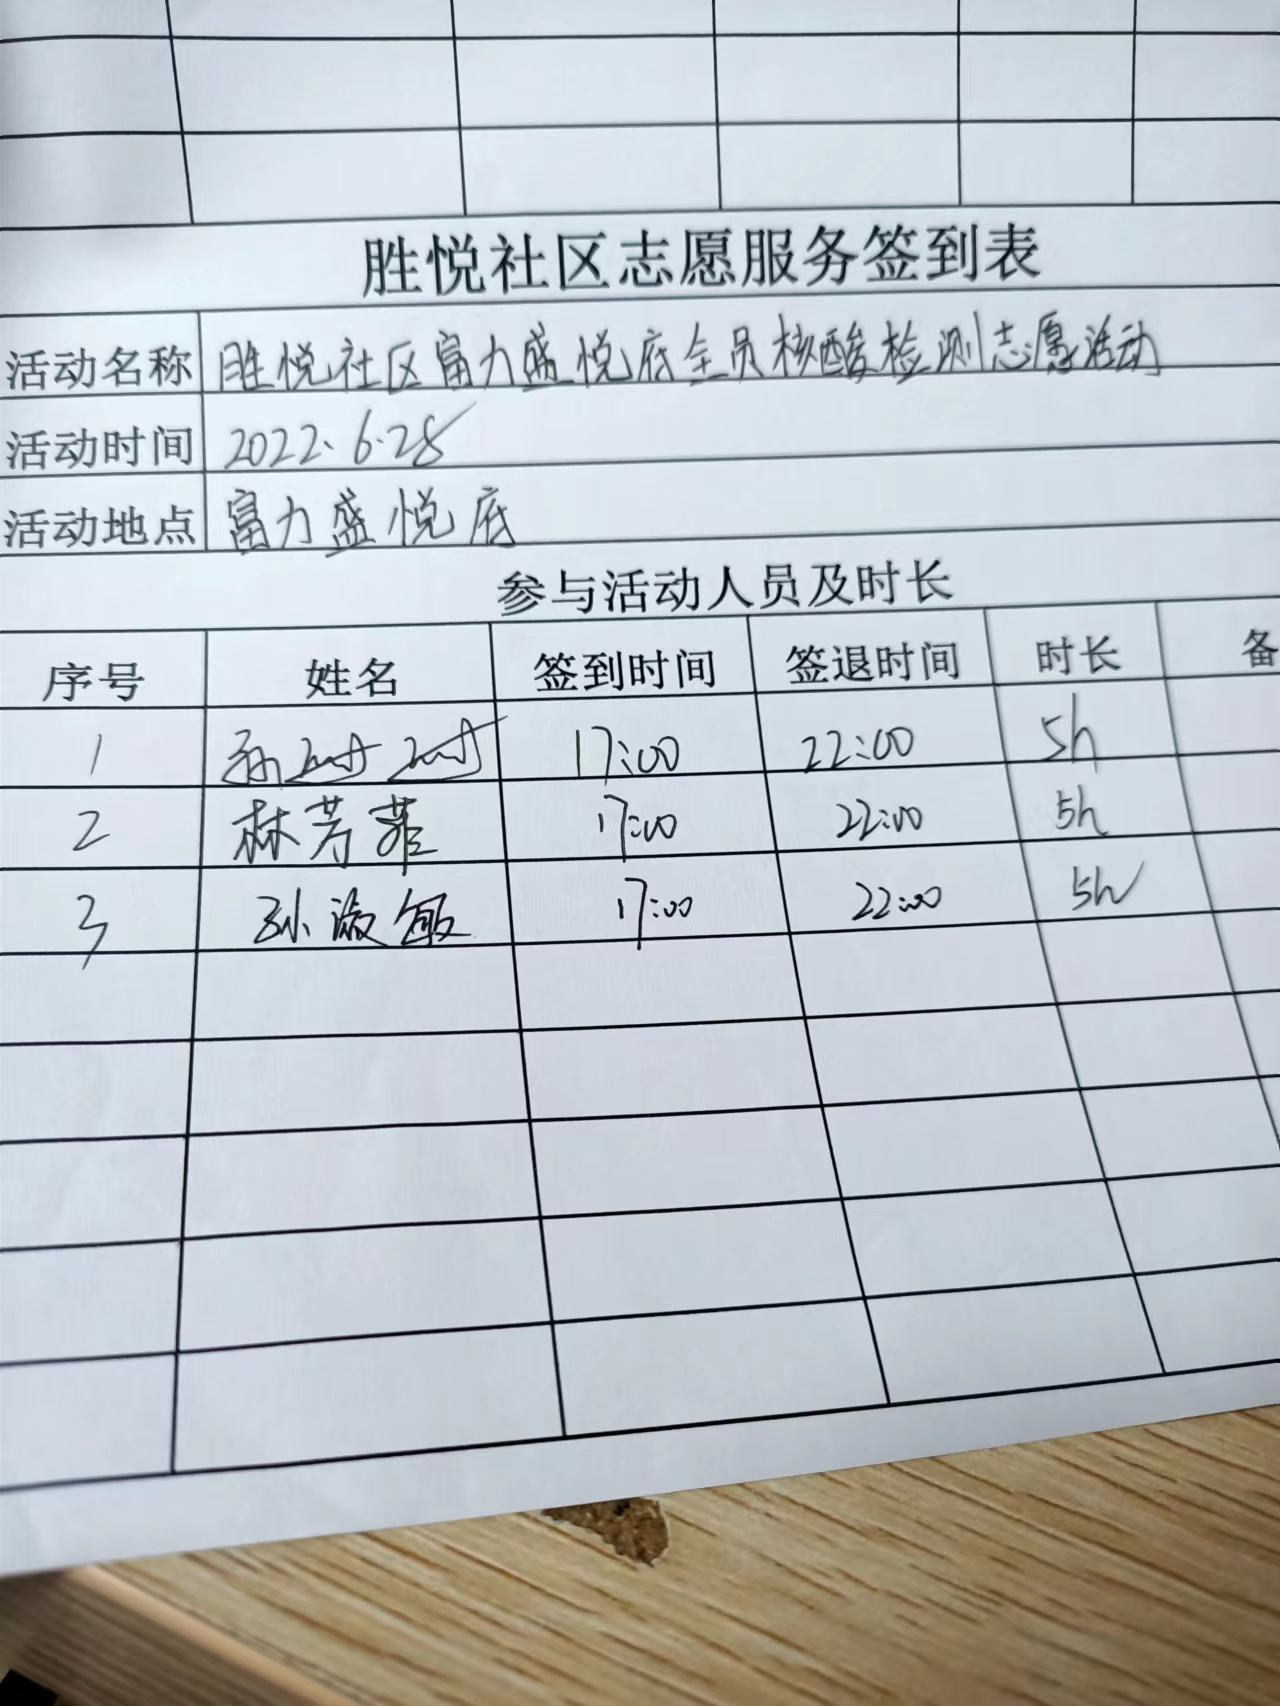 胜悦社区志愿服务签到表
活动名称 胜悦社区富力盛悦底全员核酸检测志愿活动
活动时间 2022.6.28
活动地点 富力盛悦底
参与活动人员及时长
序号 姓名 签到时间 签退时间 时长 备
1 孙 17:00 22:00 5h
2 林芳菲 17:00 22:00 5h
3 孙淑敏 17:00 22:00 5h